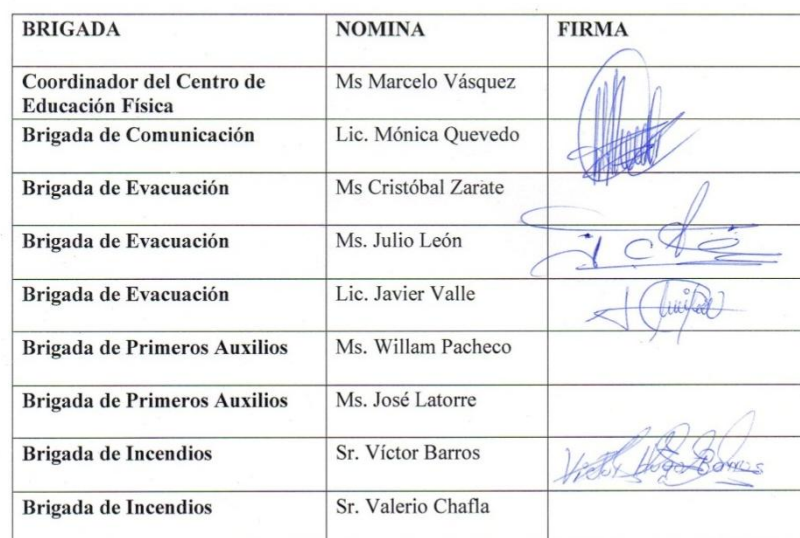 BRIGADA NOMINA FIRMA
Coordinador del Centro de Ms Marcelo Vásquez
Educación Física
Brigada de Comunicación Lic. Mónica Quevedo
Brigada de Evacuación Ms Cristóbal Zarate
Brigada de Evacuación Ms. Julio León
Brigada de Evacuación Lic. Javier Valle
Brigada de Primeros Auxilios Ms. Willam Pacheco
Brigada de Primeros Auxilios Ms. José Latorre
Brigada de Incendios Sr. Víctor Barros Victor Hugo Barros
Brigada de Incendios Sr. Valerio Chafla